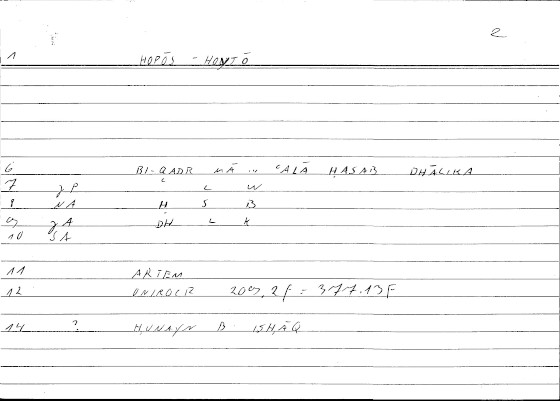 2
1 HOPŌS - HOUTŌ
6 BI-QADR MĀ ... ʿALĀ ḤASAB DHĀLIKA
7 gP ʿ L W
8 NA Ḥ S B
9 gA DH L K
10 SA
11 ARTEM
12 ONIROCR 209,2f = 377.13F
14 ? ḤUNAYN B ISḤĀQ